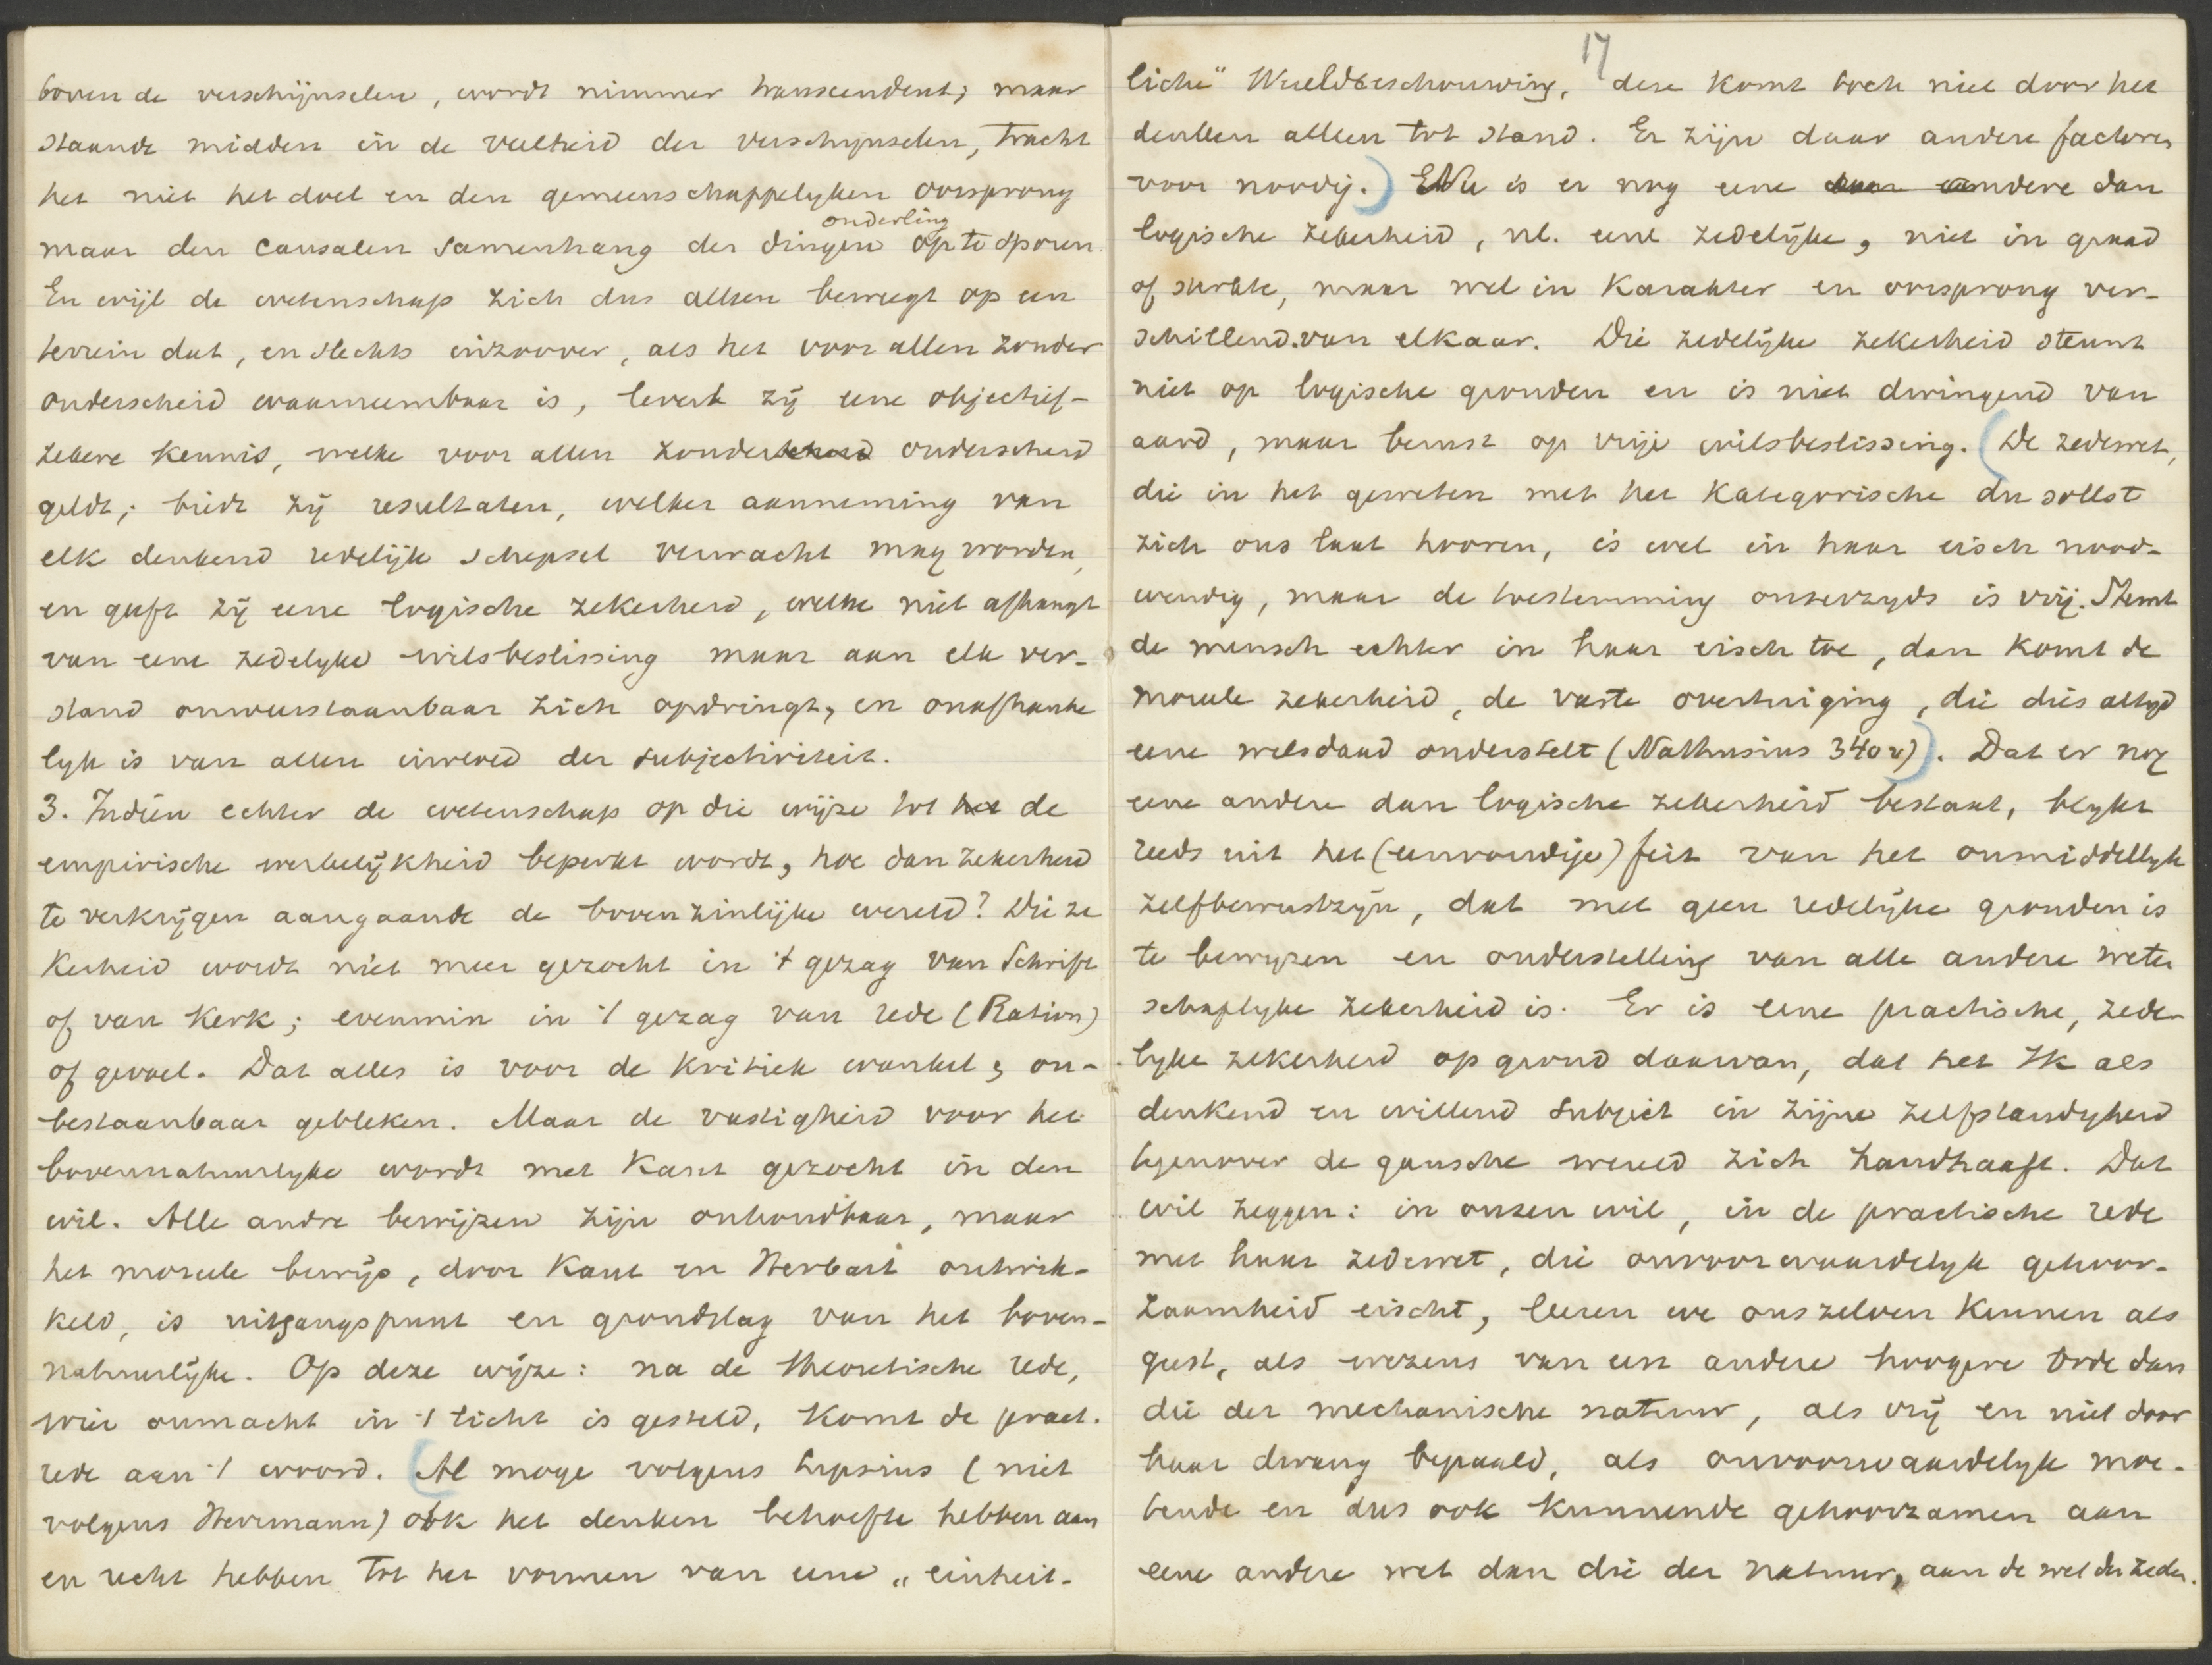 boven de verschijnselen, wordt nimmer transcendent; maar
staande midden in de veelheid der verschynselen, tracht
het niet het doel en den gemeenschappelyken oorsprong
onderling
maar den causalen samenhang der dingen op te sporen.
En wijl de wetenschap zich dus alleen beweegt op een
terrein dat, en slechts inzoover, als het voor allen zonder
onderscheid waarneembaar is, levert zij eene objectief-
zekere kennis, welke voor allen zonder onderscheid
geldt; biedt zij resultaten, welker aanneming van
elk denkend redelijk schepsel verwacht mag worden,
en geeft zij eene logische zekerheid, welke niet afhangt
van eene zedelyke wilsbeslissing maar aan elk ver-
stand onweerstaanbaar zich opdringt, en onafhanke
lyk is van allen invloed der subjectiviteit.
3. Indien echter de wetenschap op die wijze tot het de
empirische werkelijkheid beperkt wordt, hoe dan zekerheid
te verkrijgen aangaande de bovenzinlijke wereld? Die ze
kerheid wordt niet meer gezocht in 't gezag van Schrift
of van Kerk; evenmin in 't gezag van rede (Ration)
of gevoel. Dat alles is voor de Kritiek wankel, on-
bestaanbaar gebleken. Maar de vastigheid voor het
bovennatuurlyke wordt met Kant gezocht in den
wil. Alle andre bewijzen zijn onhoudbaar, maar
het moreele bewijs, door Kant en Herbart ontwik-
keld, is uitgangspunt en grondslag van het boven-
natuurlijke. Op deze wijze: na de theoretische rede,
wier onmacht in 't licht is gesteld, komt de pract.
rede aan 't woord. (Al moge volgens Lipsius (niet
volgens Herrmann) ook het denken behoefte hebben aan
en recht hebben tot het vormen van eene „einheit-
17
liche" Weltbeschouwing, deze komt toch niet door het
denken alleen tot stand. Er zijn daar andere factoren
voor noodig.) Nu is er nog eene andere dan
logische zekerheid, nl. eene zedelijke, niet in graad
of sterkte, maar wel in Karakter en oorsprong ver-
schillend van elkaar. Die zedelijke zekerheid steunt
niet op logische gronden en is niet dwingend van
aard, maar berust op vrije wilsbeslissing. (De zedewet,
die in het geweten met het Kategorische du sollst
zich ons laat hooren, is wel in haar eisch nood-
wendig, maar de toestemming onzerzyds is vrij. Stemt
de mensch echter in haar eisch toe, dan komt de
moreele zekerheid, de vaste overtuiging, die dus altyd
eene wilsdaad onderstelt (Nathusius 340v)). Dat er nog
eene andere dan logische zekerheid bestaat, blykt
reeds uit het (eenvoudige) feit van het onmiddellyk
zelfbewustzijn, dat met geen redelijke gronden is
te bewyzen en onderstelling van alle andere weten
schaplyke zekerheid is. Er is eene practische, zede-
lyke zekerheid op grond daarvan, dat het Ik als
denkend en willend subject in zijne zelfstandigheid
tegenover de gansche wereld zich handhaaft. Dat
wil zeggen: in onzen wil, in de practische rede
met haar zedewet, die onvoorwaardelyk gehoor-
zaamheid eischt, leeren we ons zelven kennen als
geest, als wezens van een andere hoogere orde dan
die der mechanische natuur, als vrij en niet door
haar dwang bepaald, als onvoorwaardelyk moe-
tende en dus ook kunnende gehoorzamen aan
eene andere wet dan die der natuur, aan de wet der zeden.